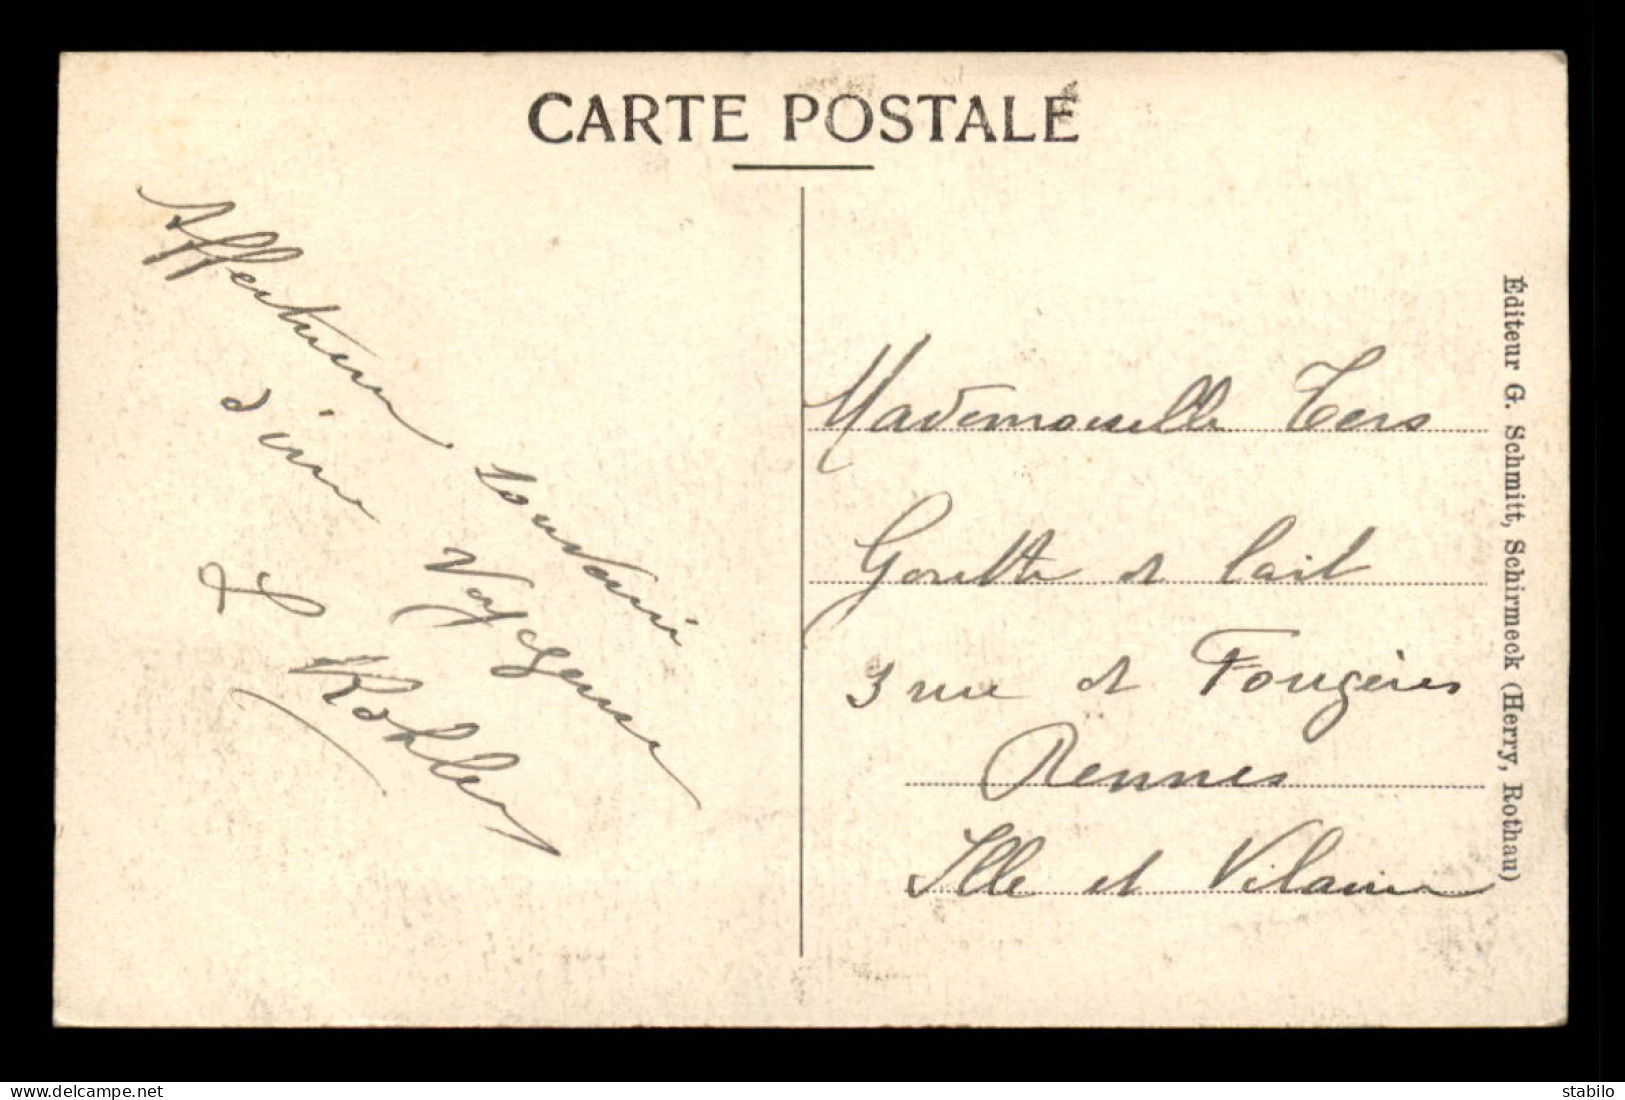 CARTE POSTALE
Affectueux souvenir
d'une Vosgienne
L Kohler
Mademoiselle Ters
Goutte de lait
3 rue de Fougères
Rennes
Ille et Vilaine
Éditeur G. Schmitt, Schirmeck (Herry, Rothau)
delcampe.net
stabilo